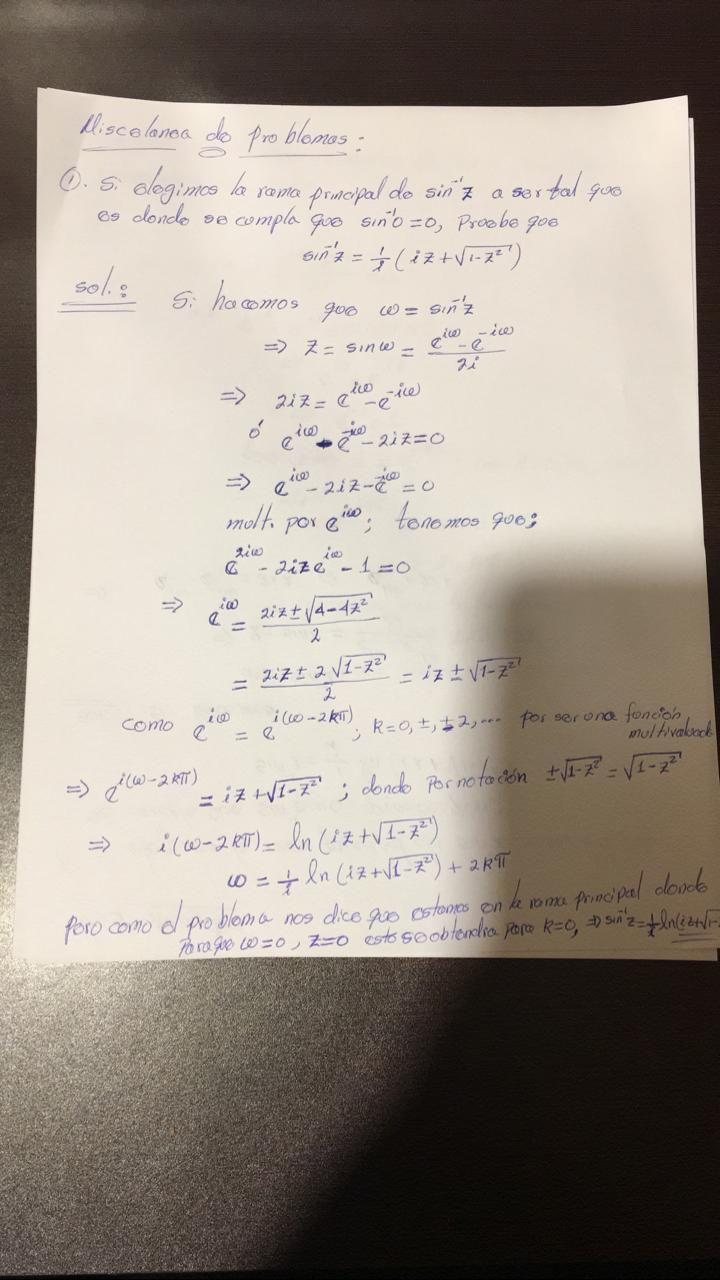 Miscelanea de problemas:
①. Si elegimos la rama principal de sin⁻¹z a ser tal que
es donde se cumpla que sin⁻¹0=0, Pruebe que
sin⁻¹z = 1/i (iz+√(1-z²))
sol.: Si hacemos que ω = sin⁻¹z
⇒ z = sin ω = (e^{iω} - e^{-iω})/2i
⇒ 2iz = e^{iω} - e^{-iω}
ó e^{iω} - e^{-iω} - 2iz = 0
⇒ e^{iω} - 2iz - e^{-iω} = 0
mult. por e^{iω}; tenemos que;
e^{2iω} - 2iz e^{iω} - 1 = 0
⇒ e^{iω} = (2iz ± √(4-4z²))/2
= (2iz ± 2√(1-z²))/2 = iz ± √(1-z²)
como e^{iω} = e^{i(ω-2kπ)}, k=0,±,±2,... por ser una función
multivaluada
⇒ e^{i(ω-2kπ)} = iz+√(1-z²) ; donde Por notación ±√(1-z²) = √(1-z²)
⇒ i(ω-2kπ) = ln(iz+√(1-z²))
ω = 1/i ln(iz+√(1-z²)) + 2kπ
Pero como el problema nos dice que estamos en la rama principal donde
Para que ω=0, z=0 esto se obtendra para k=0, ⇒ sin⁻¹z = 1/i ln(iz+√1-